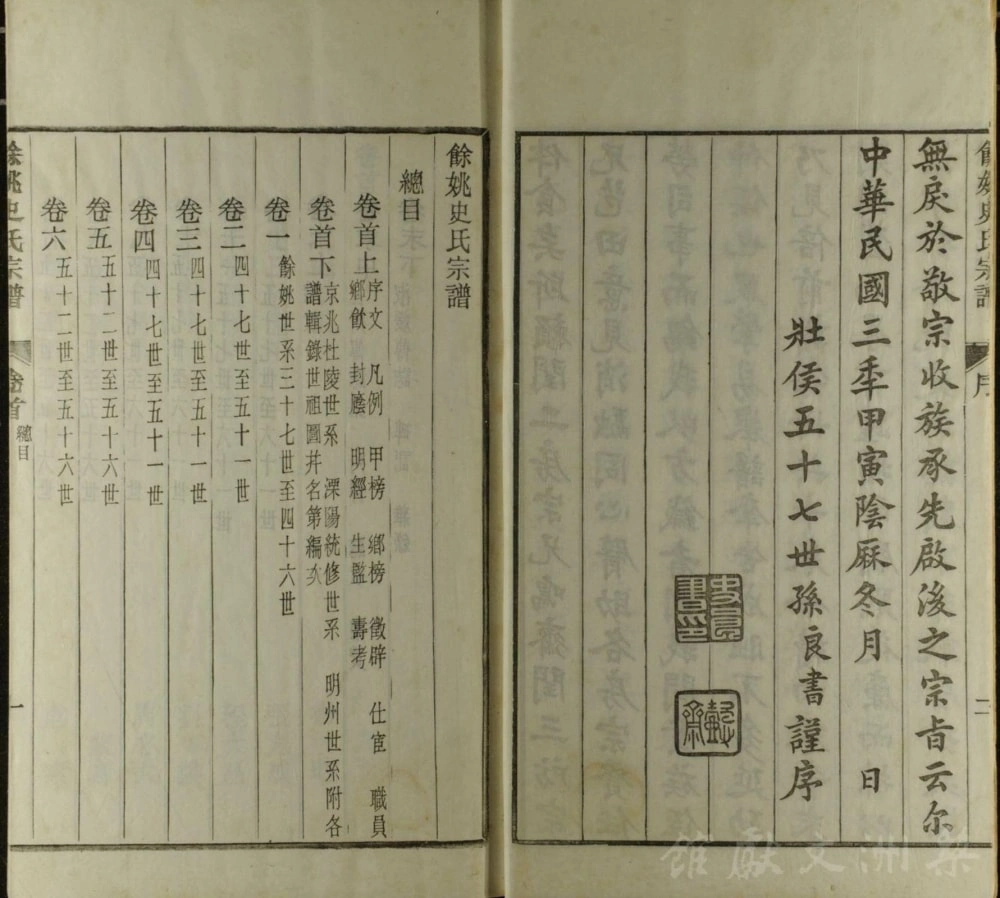 餘姚史氏宗譜
序
二
無戾於敬宗收族承先啟後之宗旨云尔
中華民國三秊甲寅陰厤冬月 日
壯侯五十七世孫良書謹序
史良書印
餘姚史氏宗譜
總目
卷首上 序文 凡例 甲榜 鄉榜 徵辟 仕宦 職員
鄉飲 封廕 明經 生監 壽考
卷首下 京兆杜陵世系 溧陽統修世系 明州世系附各
譜輯錄世祖圖并名第編次
卷一 餘姚世系三十七世至四十六世
卷二 四十七世至五十一世
卷三 四十七世至五十一世
卷四 四十七世至五十一世
卷五 五十二世至五十六世
卷六 五十二世至五十六世
餘姚史氏宗譜
卷首
總目
一
梨洲文獻館